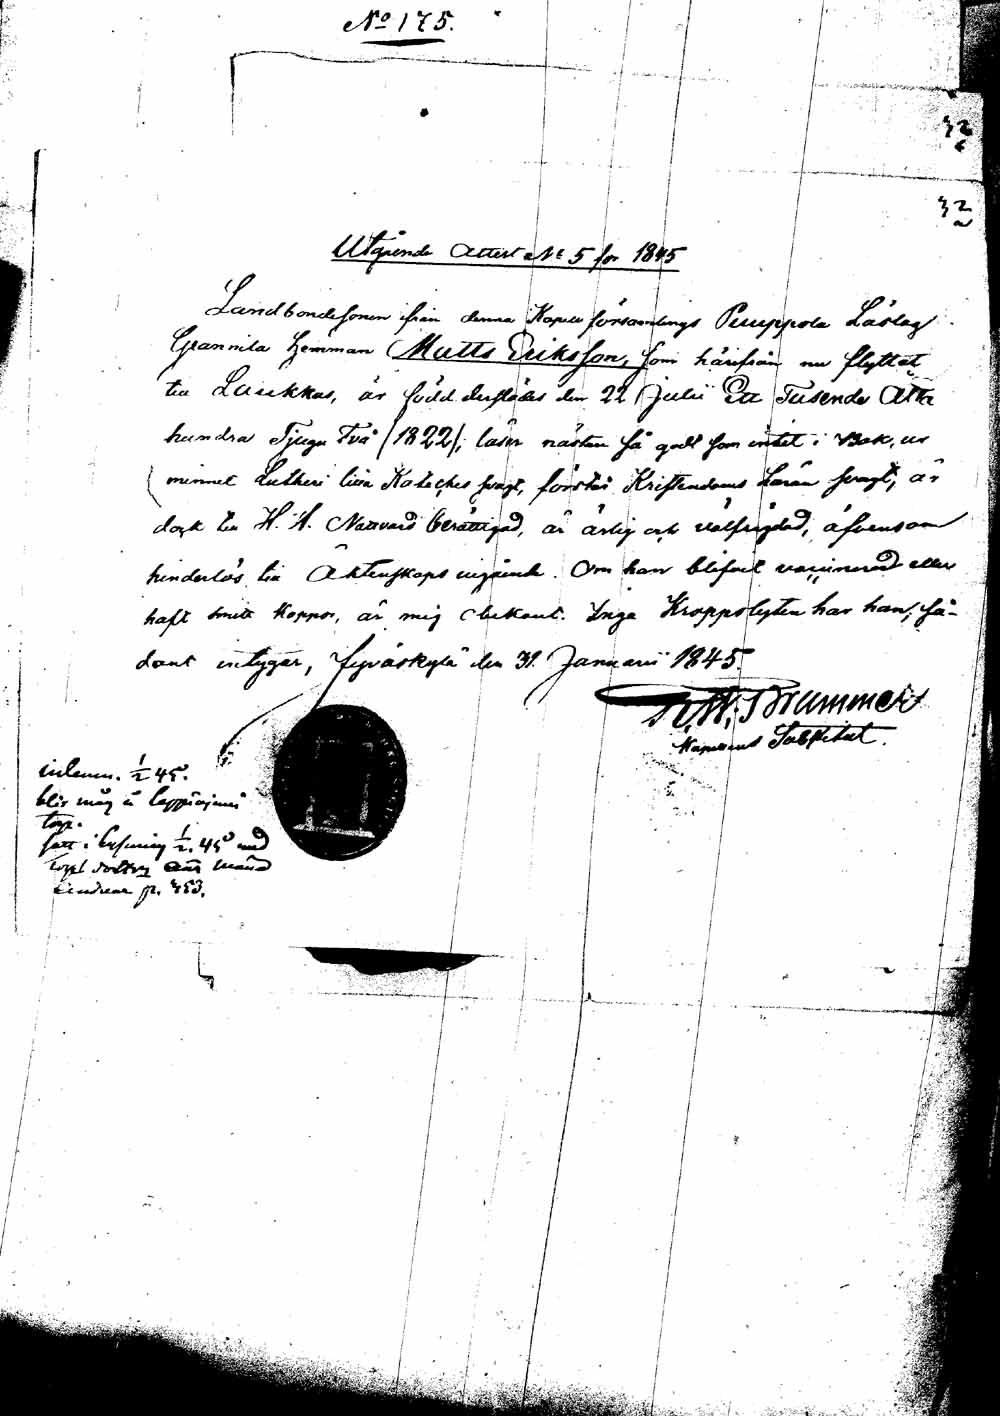 No 175.
32
32
Utgående Attest No 5 för 1845
Landbondesonen ifrån denna Kapell församlings Puuppola Läslag
Grannila hemman Matts Eriksson, som härifrån nu flyttat
till Laukkas, är född derstädes den 22 Julii Ett Tusende Åtta
hundra Tjugu Två /1822/; läser nästan så godt som intet i Bok, ur
minnet Lutheri lilla Kateches svagt, förstår Kristendoms Läran svagt, är
dock till H. H. Nattvard berättigad, är ärlig och välfrägdad, äfvensom
hinderlös till Äktenskaps ingående. Om han blifvit vaccinerad eller
haft smitt Koppor, är mig obekant. Inga Kroppslyten har han; så-
dant intygar, Jyväskylä den 31 Januarii 1845.
Brummer
Kapellans
inlemn. 1/2 45.
blir måg å
torp.
1/2. 45 med
torp dottren
p. 453.